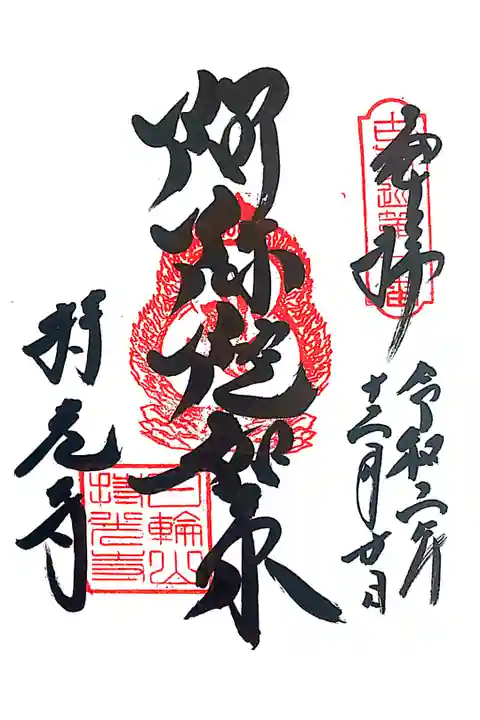 奉拝
令和二年
十二月廿日
阿弥陀如来
持光寺
日輪山
持光寺